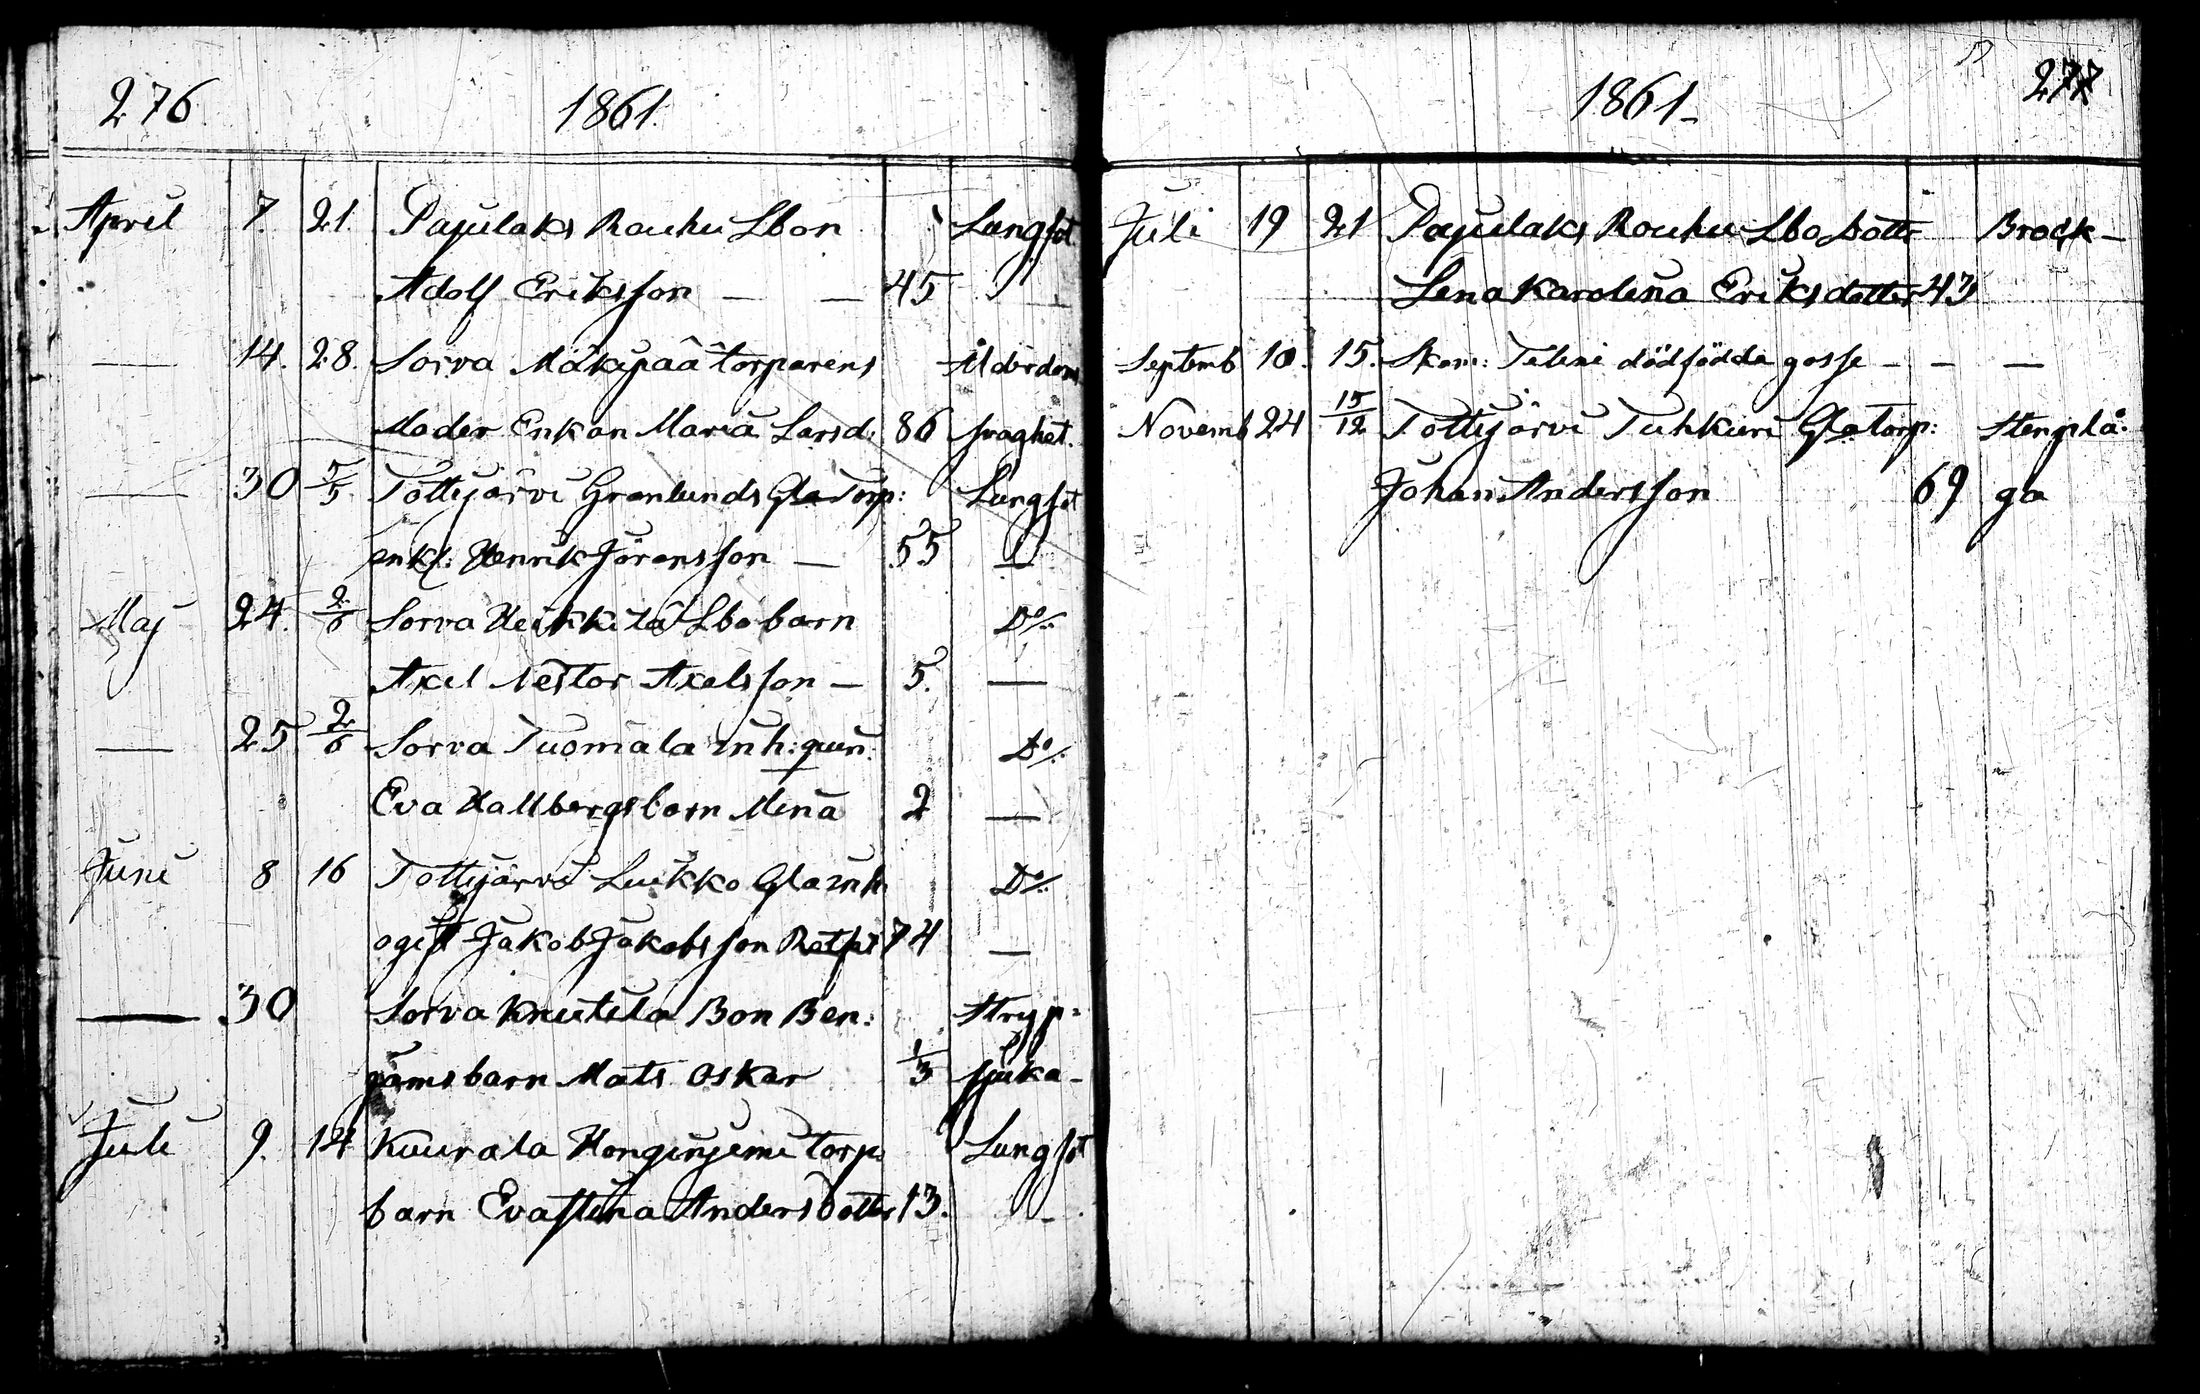 276. 1861.
April 7. 21. Pajulaks Rauhu Lbon Lungsot
Adolf Eriksson — — 45 —
— 14. 28. Sorva Mäkipää torparens Ålderdoms
Moder Enkan Maria Larsd: 86 svaghet.
— 30 5/5 Tottijärvi Granlunds Gla Torp: Lungsot
enkl: Henrik Jöransson — 55 —
Maj 24. 2/6 Sorva Heikkilä Lbo barn Do/.
Axel Nestor Axelsson — 5. —
— 25 2/6 Sorva Tuomala inh: qvin: Do/.
Eva Hallbergs barn Mina 2 —
Juni 8 16 Tottijärvi Luikko Gla inh Do/.
ogift Jakob Jakobsson 74 —
— 30 Sorva Knutila Bon Ben: Stryp-
jams barn Mats Oskar 1/3 sjuka-
Juli 9. 14 Kuurala Honginjemi torp: Lungsot
barn Eva Stina Andersdotter 13. -
1861- 277
Juli 19 21 Pajulaks Rouhu Lbo Dotter Brock-
Lena Karolina Eriksdotter 43
Septemb 10. 15. Skom: dödfödda gosse - - —
Novemb 24 15/12 Tottijärvi Tuhkuri Gla torp: Stenplå-
Johan Andersson 69 ga